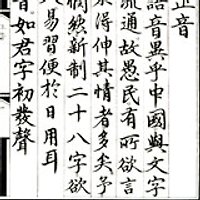 正音
語音異乎中國與文字
流通故愚民有所欲言
不得伸其情者多矣予
憫然新制二十八字欲
人易習便於日用耳
音如君字初發聲